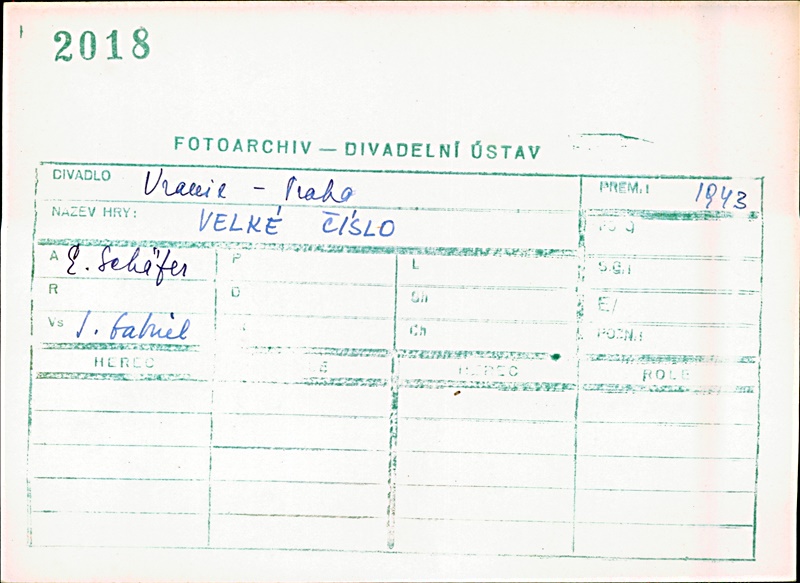 2018
FOTOARCHIV — DIVADELNÍ ÚSTAV
DIVADLO Uranie - Praha PREM.:  1943
NÁZEV HRY: VELKÉ ČÍSLO
A E. Schäfer P L S.G.:
R D Sh E/
Vs J. Gabriel Ch POZN.:
HEREC HEREC ROLE